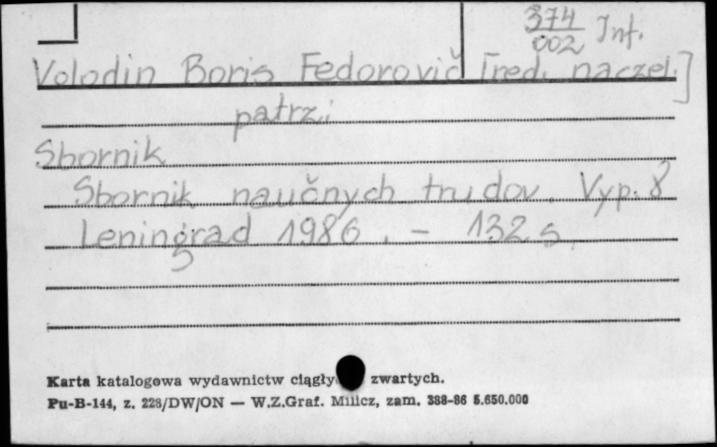 374
002 Int.
Volodin Boris Fedorovič [red. naczel.]
patrz:
Sbornik
Sbornik naučnych trudov. Vyp. 8
Leningrad 1986. - 132 s.
Karta katalogowa wydawnictw ciągły zwartych.
Pu-B-144, z. 228/DW/ON — W.Z.Graf. Milicz, zam. 388-86 5.650.000